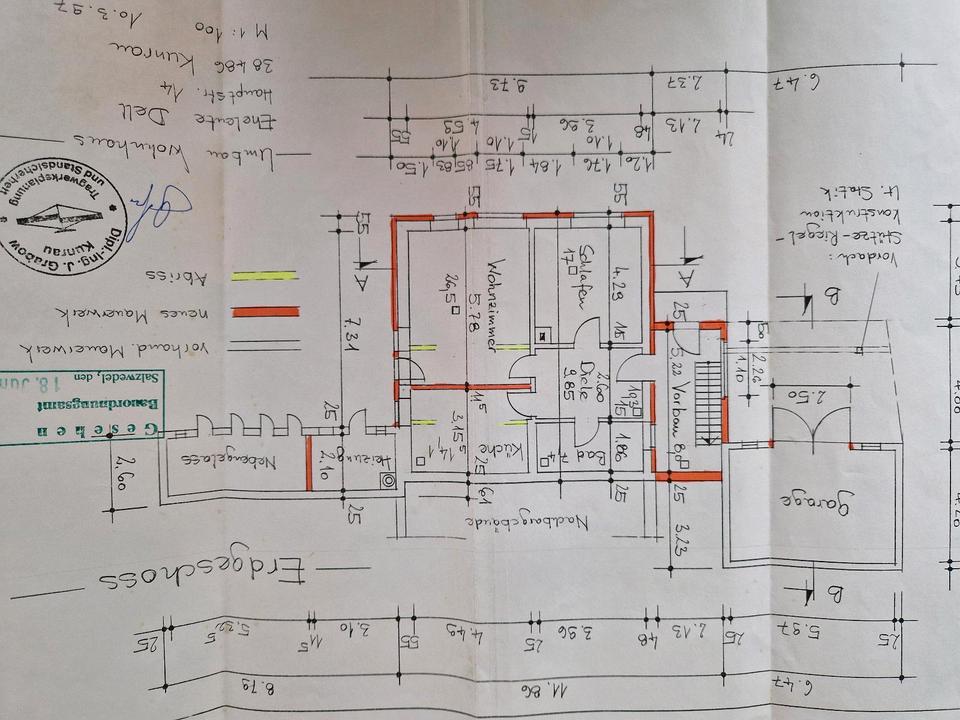 Umbau Wohnhaus
Eheleute Dell
Hauptstr. 14
38486 Kunrau
M 1:100
10.3.97
Dipl.-Ing. J. Grabow
Kunrau
Tragwerksplanung
und Standsicherheit
Gesehen
Bauordnungsamt
Salzwedel, den
18. Jun
vorhand. Mauerwerk
neues Mauerwerk
Abriss
Erdgeschoss
25
5.97
25
2.13
48
3.86
25
4.49
55
3.10
11⁵
25
6.47
11.86
8.79
Garage
2.50
B
B
Vordach:
Stütze-Riegel-
Konstruktion
lt. Statik
Vorbau 8.0
5.22
25
25
3.23
50
2.26⁵
1.10
Nachbargebäude
Bad
7.4
1.86
25
Küche
14.1
3.15⁵
25
61
Heizung
2.10
25
25
Nebengelass
2.60
Diele
9.85
2.60
15
15
Schlafen
17
4.29
Wohnzimmer
26.5
5.78
11⁵
7.31
55
55
55
A
A
1.20
1.76
1.84
1.75
85
83
1.50
1.10
1.10
1.10
24
2.13
48
3.86
15
4.59
55
6.47
2.37
9.73